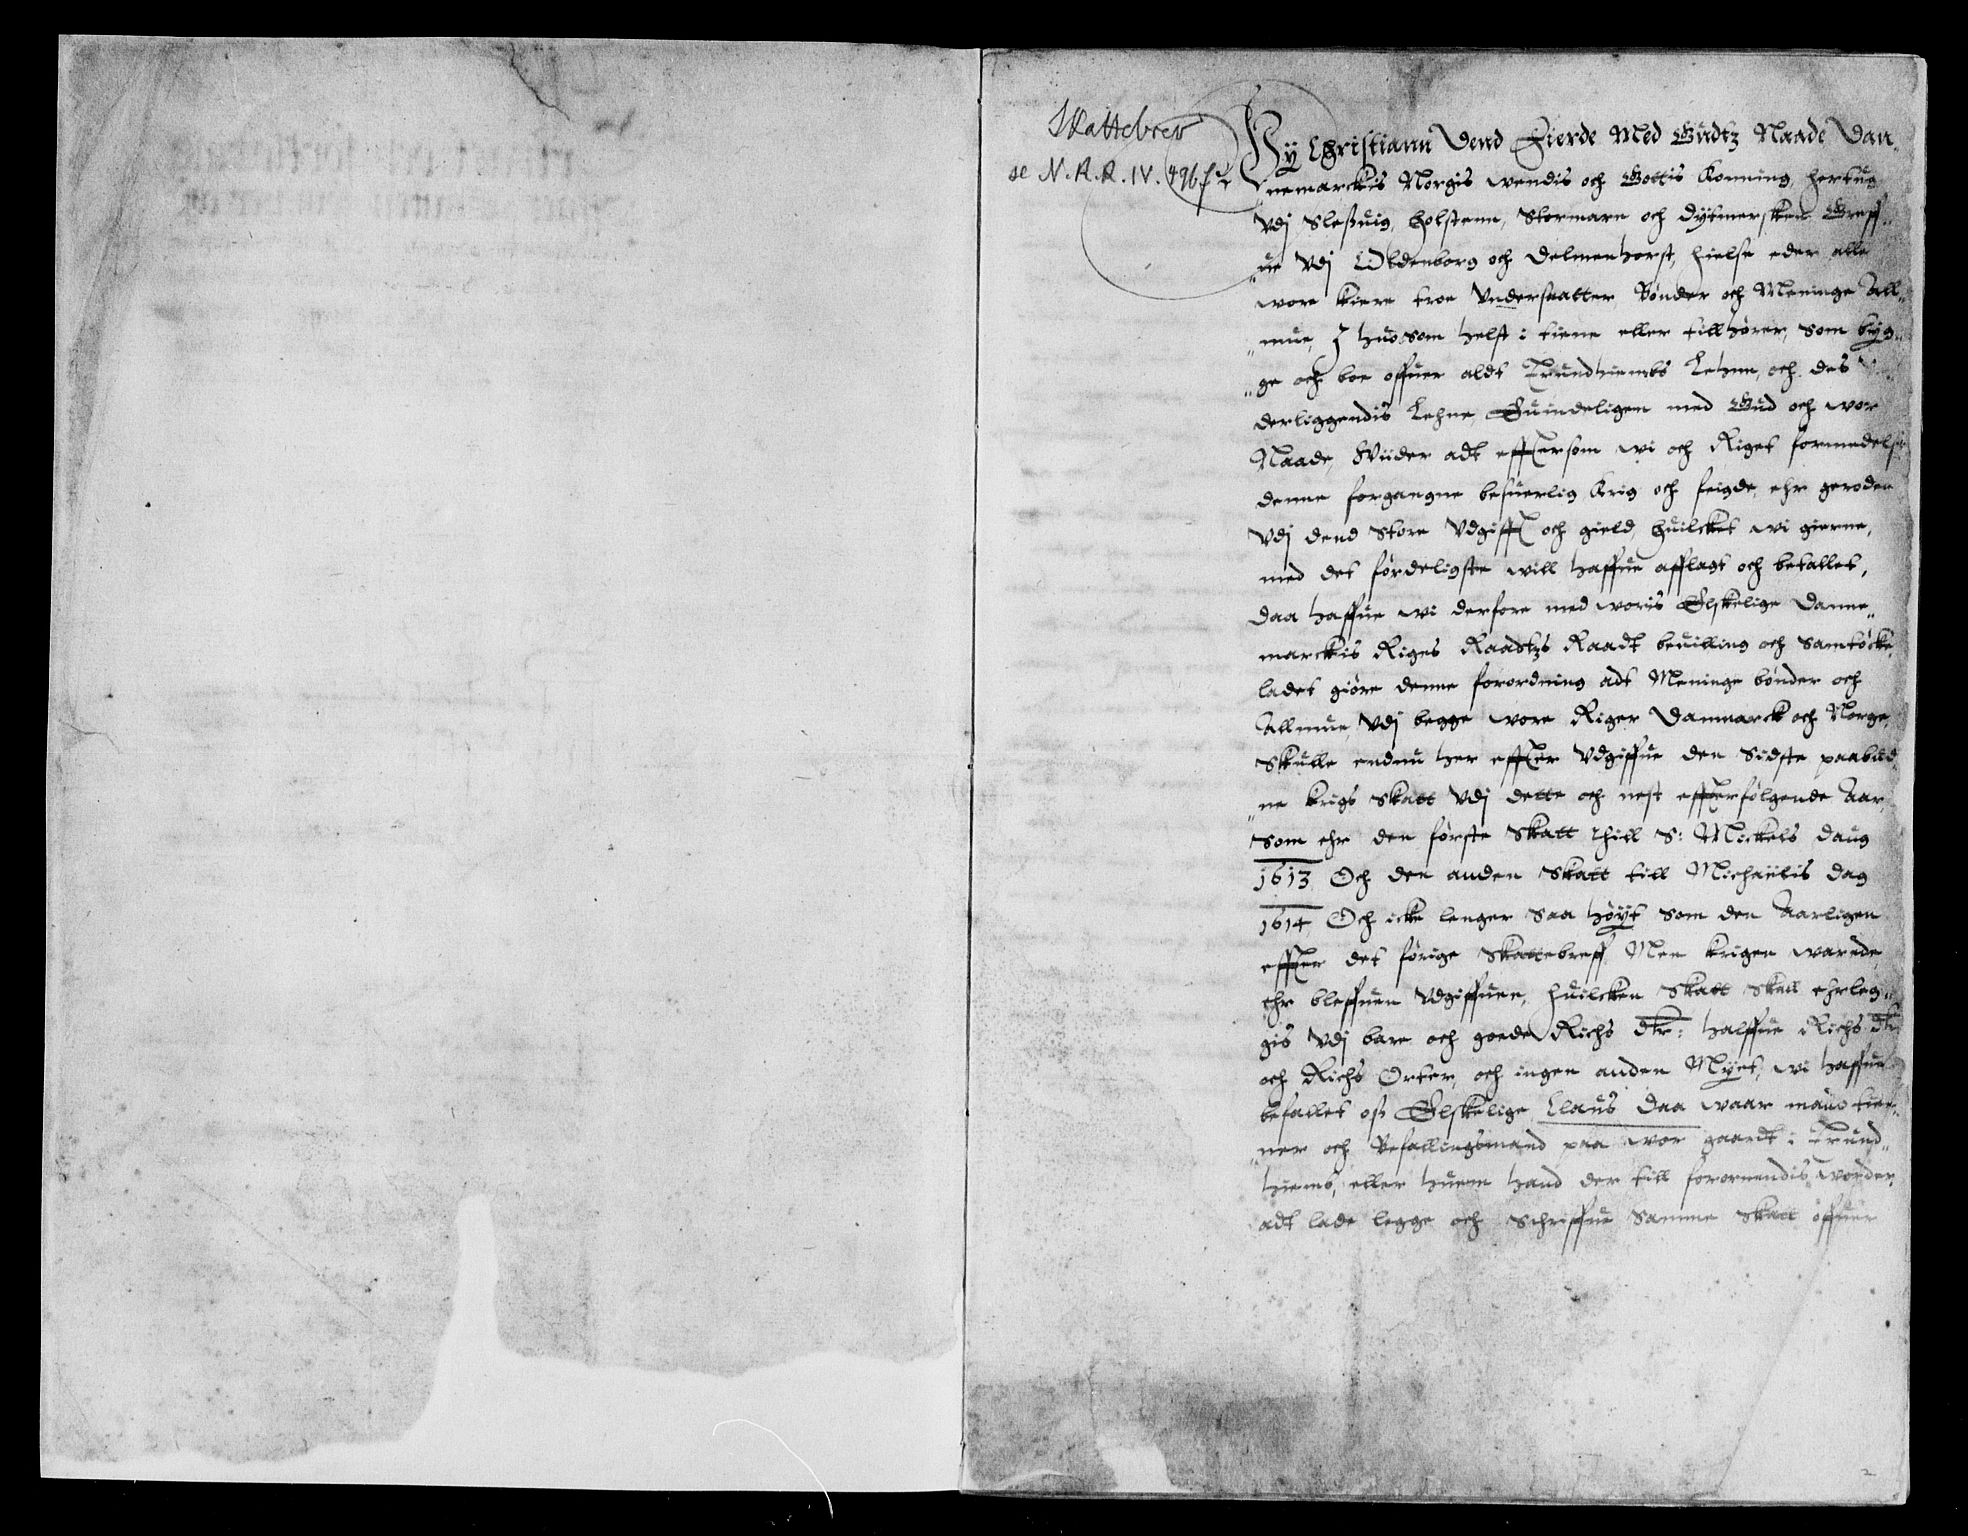 Skattebrev
se N.R.R. IV. 496 f
Wy Christiann Dend Fierde Med Gudtz Naade Dan,
nemarckis Norgis wendis och Gottis Konning, hertug
Vdj Sleßuig, holstenn, Stormarn och Dytmersken Greff,,
ue Vdj Oldenborg och Delmenhorst, hielse eder alle
wore kiere troe Vndersaatter, Bønder och Meninge All,,
mue, J huosom helst i tiene eller tillhører, som byg,,
ge och boe offuer aldt Trundhiembs Lehnn, och des
derliggendis Lehne, Guindeligen med Gud och wor
Naade, Wiider adt effterson wi och Riget formedelst
denne forgangne besuerlig krig och feigde, ehr geroden
Vdj dend Store Vdgifft och gield, huilcket wi gierne,
med det førdeligste will haffue afflagt och betallet,
daa haffue wi derfore med woris Elskelige Danne,,
marckis Riges Raadtzs Raadt beuilling och Samtöcke,
ladet giøre denne forordning adt Meninge bønder och
Allmue, Vdj begge wore Riger Danmarck och Norge,
Skulle endnu her effter Vdgiffue den Sidste paabud,
ne krigs Skatt Vdj dette och nest effterfølgende Aar,
Som ehr den første Skatt thill S: Mickels daug
1613 Och den anden Skatt till Michaelis dag
1614, Och icke lenger saa høyt som den Aarligen
effter det førige Skattebreff, Men krigen warede,
ehr bleffuen Vdgiffuen, huilcken Skatt Skall ehrleg,,
gis Vdj bare och goede Richs dlr: halffue Richs dlr
och Richs Orter, och ingen anden Mynt, wi haffue
befallet oß Elskelige Claus Daa waar mand tien,,
ner och Befallingsmand paa wor gaardt i Trund,,
hiems, eller huem hand der till forornendis worder,
adt lade legge och Schriffue Samme Skatt offuer
2